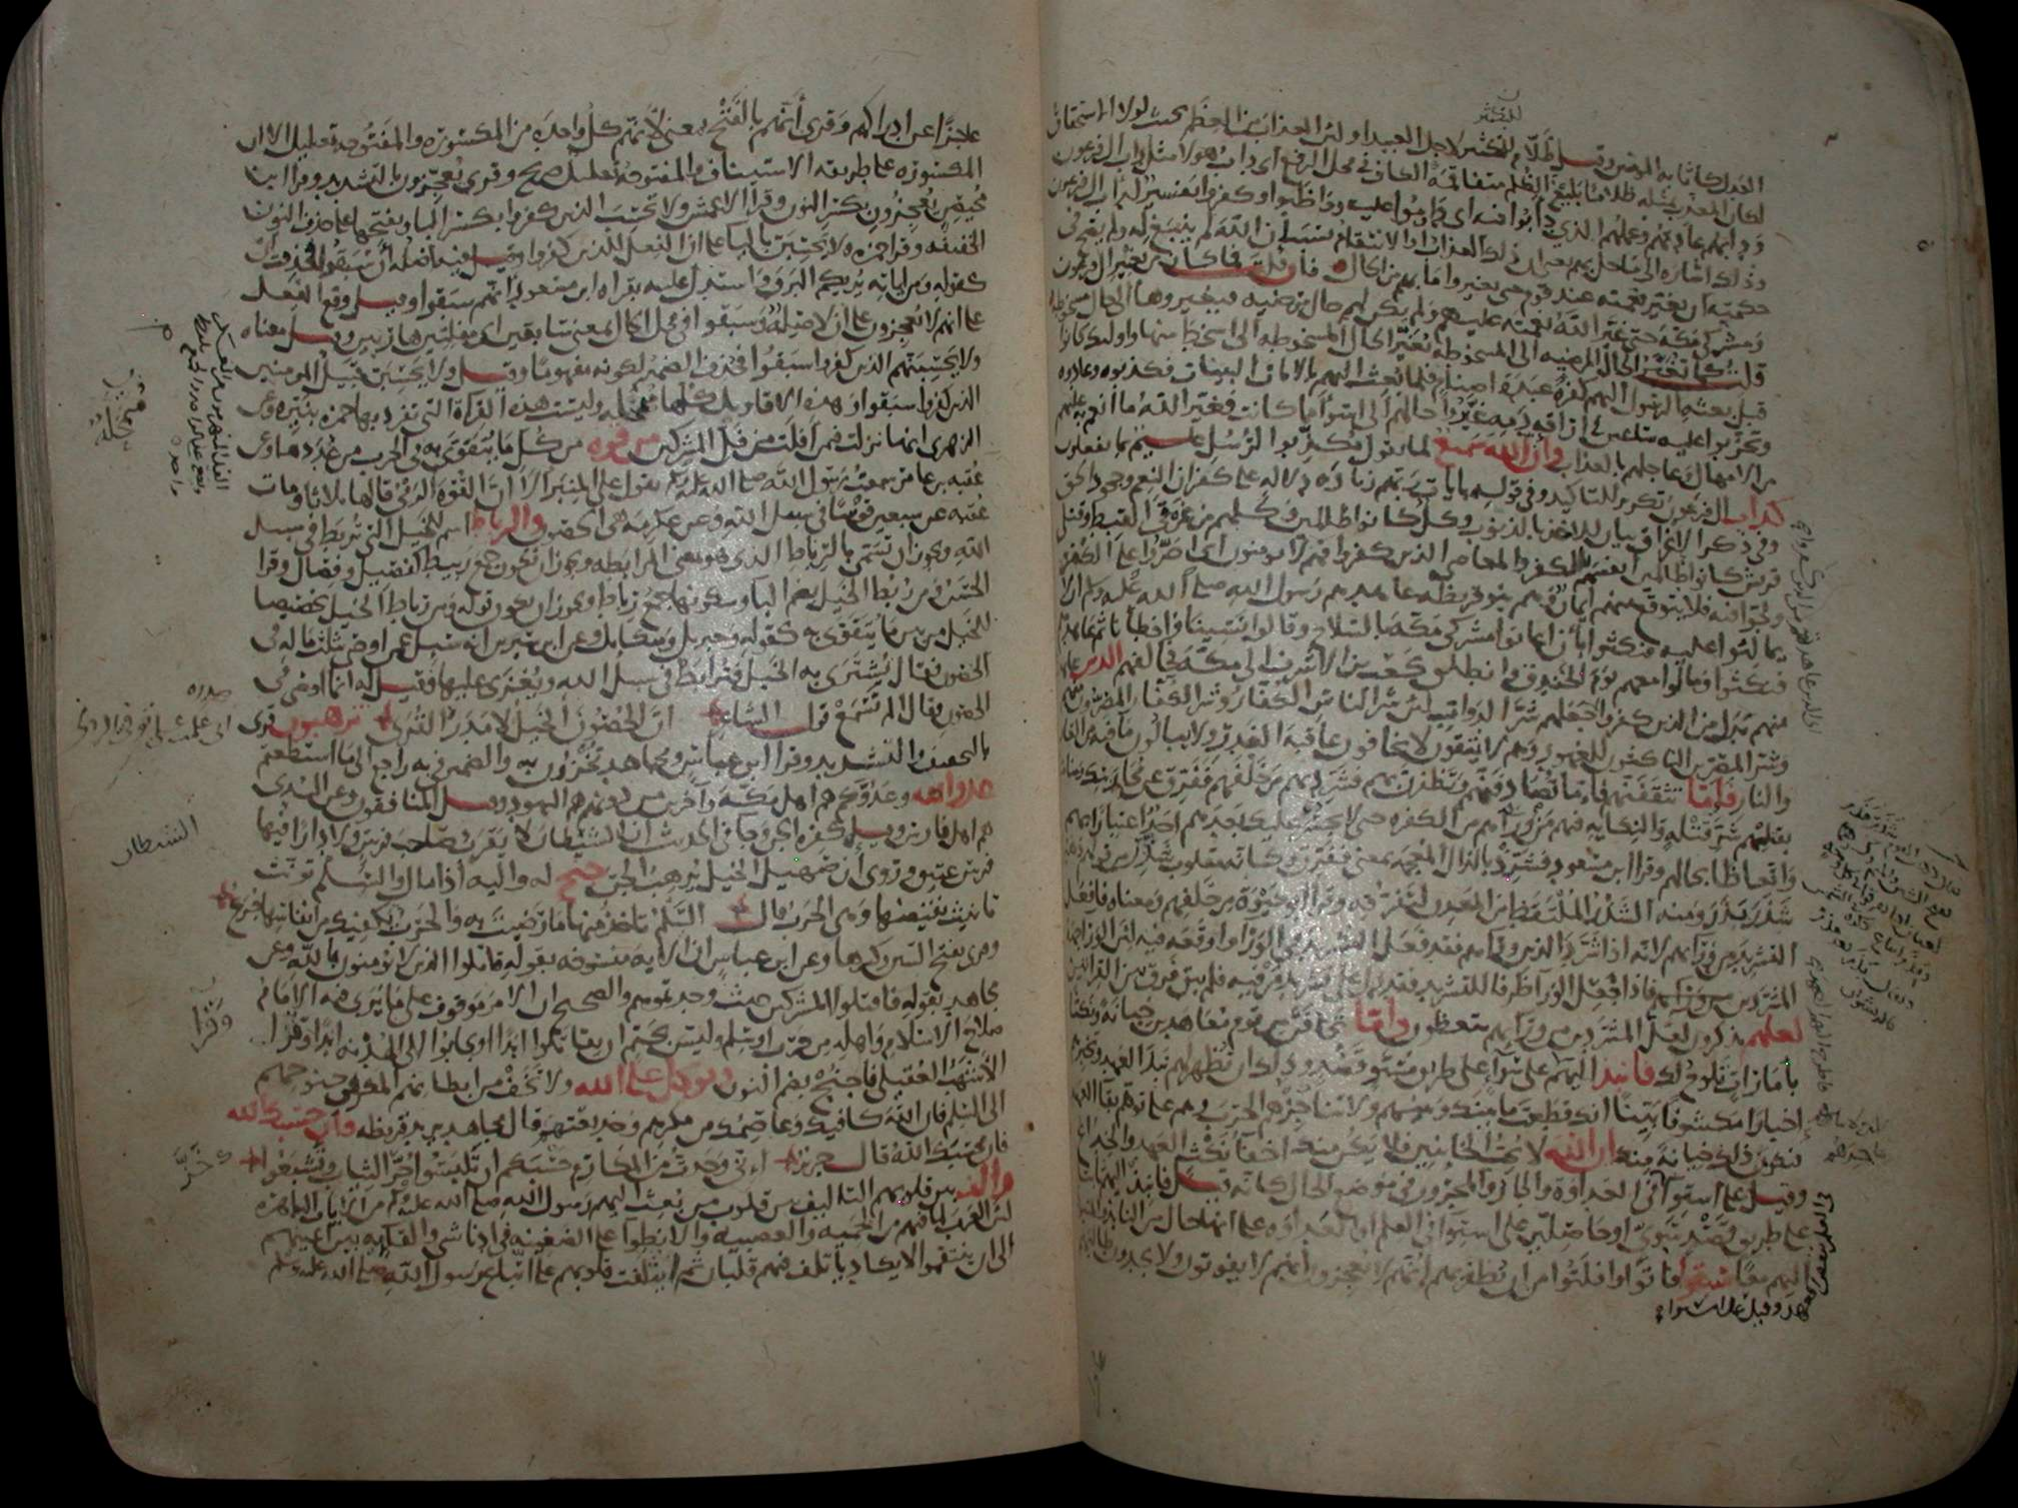 للتكثير
العدل كاثابة المؤمنين وقيل ظلام للتكثير لاجل العبيد او لان العذاب من العظم بحيث لولا الاستحقاق
لكان المعذب بمثله ظلاما بليغ الظلم متفاقمه الكاف في محل الرفع اى داب هولا مثل داب ال فرعون
ودابهم عادتهم وعملهم الذي دابوا فيه اى داوموا عليه وواظبوا وكفروا تفسير لداب ال فرعون
وذلك اشارة الى ما حل بهم يعنى ان ذلك العذاب او الانتقام بسبب ان الله لم ينبغ له ولم يصح في
حكمته ان يغير نعمته عند قوم حتى يغيروا ما بهم من الحال فان قلت فما كان من تغيير ال فرعون
ومشركى مكة حتى غير الله نعمته عليهم ولم يكن لهم حال مرضية فيغيروها الى حال مسخوطة
قلت كما تغير الحال المرضية الى المسخوطة تغير الحال المسخوطة الى اسخط منها واولئك كانوا
قبل بعثة الرسول اليهم كفرة عبدة اصنام فلما بعث اليهم بالايات البينات فكذبوه وعادوه
وتحزبوا عليه ساعين في اراقة دمه غيروا حالهم الى اسوأ مما كانت فغير الله ما انعم به عليهم
من الامهال وعاجلهم بالعذاب وان الله سميع لما يقول مكذبوا الرسل عليم بما يفعلون
كداب ال فرعون تكرير للتاكيد وفى قوله بايات ربهم زيادة دلالة على كفران النعم وجحود الحق
وفى ذكر الاغراق بيان للاخذ بالذنوب وكل كانوا ظالمين وكلهم من غرقى القبط وقتلى
قريش كانوا ظالمين انفسهم بالكفر والمعاصى الذين كفروا فهم لا يومنون اى اصروا على الكفر
ولجوا فيه فلا يتوقع منهم ايمان وهم بنو قريظة عاهدهم رسول الله صلى الله عليه وسلم ان لا
يمالئوا عليه فنكثوا بان اعانوا مشركى مكة بالسلاح وقالوا نسينا واخطانا ثم عاهدهم
فنكثوا ومالوا معهم يوم الخندق وانطلق كعب بن الاشرف الى مكة فحالفهم الذين عاهدت
منهم بدل من الذين كفروا جعلهم شر الدواب لان شر الناس الكفار وشر الكفار المصرون منهم
وشر المصرين الناكثون للعهود وهم لا يتقون لا يخافون عاقبة الغدر ولا يبالون ما فيه من العار
والنار فاما تثقفنهم فاما تصادفنهم وتظفرن بهم فشرد بهم من خلفهم ففرق عن محاربتك ومناصبتك
بقتلهم شر قتلة والنكاية فيهم من وراءهم من الكفرة حتى لا يجسر عليك بعدهم احد اعتبارا بهم
واتعاظا بحالهم وقرا ابن مسعود فشرذ بالذال المعجمة بمعنى ففرق وكانه مقلوب شذر من قولهم ذهبوا
شذر بذر ومنه الشذر الملتقط من المعدن لتفرقه وقرا ابو حيوة من خلفهم ومعناه فافعل
التشريد من ورائهم لانه اذا شرد الذين وراءهم فقد فعل التشريد في الوراء واوقعه فيه لان الوراء جهة
المشردين فاذا جعل الوراء ظرفا للتشريد فقد دل على تشريد من فيه فلم يبق فرق بين القراتين
لعلهم يذكرون لعل المشردين من وراءهم يتعظون واما تخافن من قوم معاهدين خيانة ونكثا
بامارات تلوح لك فانبذ اليهم على سواء على طريق مستو قصد وذلك ان تظهر لهم نبذ العهد وتخبرهم
اخبارا مكشوفا بينا انك قطعت ما بينك وبينهم ولا تناجزهم الحرب وهم على توهم بقاء العهد
فيكون ذلك خيانة منك ان الله لا يحب الخائنين فلا يكن منك اخفاء نكث العهد والخداع
وقيل على استواء في العداوة والجار والمجرور في موضع الحال كانه قيل فانبذ اليهم ثابتا
على طريق قصد سوى او حاصلين على استواء في العلم او العداوة على انها حال من النابذ والمنبوذ
اليهم معا سبقوا فاتوا وافلتوا من ان يظفر بهم انهم لا يعجزون انهم لا يفوتون ولا يجدون طالبهم
عاجزا عن ادراكهم وقرى انهم بالفتح بمعنى لانهم كل واحدة من المكسورة والمفتوحة تعليل الا ان
المكسورة على طريقة الاستيناف والمفتوحة تعليل صريح وقرى يعجزون بالتشديد وقرا ابن
محيصن يعجزون بكسر النون وقرا الاعمش ولا تحسب الذين كفروا بكسر الباء وبفتحها على حذف النون
الخفيفة وقرا حمزة ولا يحسبن بالياء على ان الفعل للذين كفروا وقيل فيه اصله ان سبقوا فحذفت ان
كقوله ومن اياته يريكم البرق واستدل عليه بقراة ابن مسعود انهم سبقوا وقيل وقع الفعل
على انهم لا يعجزون على ان لا صلة وسبقوا في محل الحال بمعنى سابقين اى مفلتين هاربين وقيل معناه
ولا يحسبنهم الذين كفروا سبقوا فحذف الضمير لكونه مفهوما وقيل ولا يحسبن قبيل المومنين
الذين كفروا سبقوا وهذه الاقاويل كلها متمحلة وليست هذه القراة التى تفرد بها حمزة بنيرة وعن
الزهرى انها نزلت فيمن افلت من فل المشركين من قوة من كل ما يتقوى به في الحرب من عددها وعن
عقبة بن عامر سمعت رسول الله صلى الله عليه وسلم يقول على المنبر الا ان القوة الرمى قالها ثلاثا ومات
عقبة عن سبعين قوسا في سبيل الله وعن عكرمة هى الحصون والرباط اسم للخيل التى تربط في سبيل
الله ويجوز ان تسمى بالرباط الذى هو بمعنى المرابطة ويجوز ان يكون جمع ربيط كفصيل وفصال وقرا
الحسن ومن ربط الخيل بضم الباء وسكونها جمع رباط ويجوز ان يكون قوله ومن رباط الخيل تخصيصا
للخيل من بين ما يتقوى به كقوله وجبريل وميكايل وعن ابن سيرين انه سيل عمن اوصى بثلث ماله في
الحصون فقال يشترى به الخيل فترابط في سبيل الله ويغزى عليها فقيل له انما اوصى في
الحصون فقال الم تسمع قول الشاعر ان الحصون الخيل لا مدر القرى ترهبون قرى
بالتخفيف والتشديد وقرا ابن عباس ومجاهد تخزون به والضمير في به راجع الى ما استطعتم
عدو الله وعدوكم هم اهل مكة واخرين من دونهم هم اليهود وقيل المنافقون وعن السدى
هم اهل فارس وقيل كفرة الجن وجا في الحديث ان الشيطان لا يقرب صاحب فرس ولا دارا فيها
فرس عتيق وروى ان صهيل الخيل يرهب الجن جنح له واليه اذا مال والسلم تؤنث
تانيث نقيضها وهى الحرب قال السلم تاخذ منها ما رضيت به والحرب يكفيك من انفاسها جرع
وهى بفتح السين وكسرها وعن ابن عباس ان الاية منسوخة بقوله قاتلوا الذين لا يومنون بالله وعن
مجاهد بقوله فاقتلوا المشركين حيث وجدتموهم والصحيح ان الامر موقوف على ما يرى فيه الامام
صلاح الاسلام واهله من حرب او سلم وليس بحتم ان يقاتلوا ابدا او يجابوا الى الهدنة ابدا وقرا
الاشهب العقيلى فاجنح بضم النون وتوكل على الله ولا تخف من ابطانهم المكر في جنوحهم
الى السلم فان الله كافيك وعاصمك من مكرهم وخديعتهم قال مجاهد يريد قريظة فان حسبك الله
فان محسبك الله قال جرير انى وجدت من المكارم حسبكم ان تلبسوا حر الثياب وتشبعوا
والف بين قلوبهم التاليف بين قلوب من بعث اليهم رسول الله صلى الله عليه وسلم من الايات الباهرة
لان العرب لما فيهم من الحمية والعصبية والانطواء على الضغينة في ادنى شى والقائه بين اعينهم
الى ان ينتقموا لا يكاد ياتلف فيهم قلبان ثم ائتلفت قلوبهم على اتباع رسول الله صلى الله عليه وسلم
الشيطان
وقرا